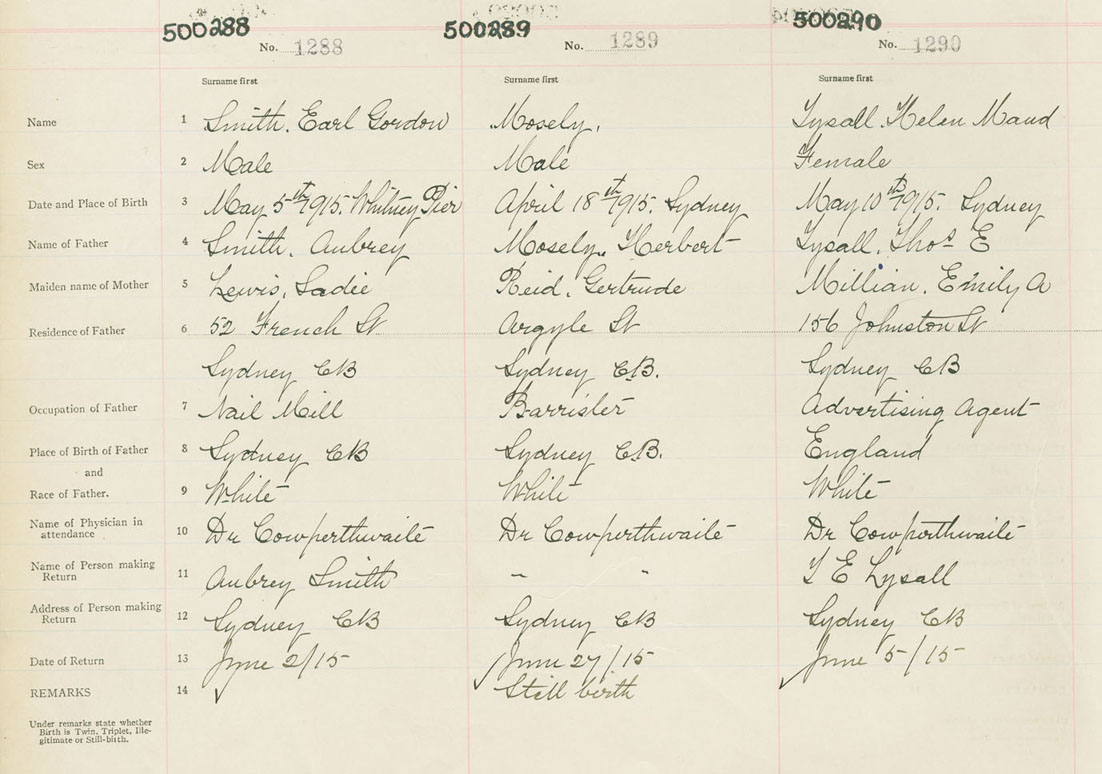 500288 500289 500290
No. 1288 No. 1289 No. 1290
Surname first Surname first Surname first
Name 1 Smith, Earl Gordon Mosely, Lysall, Helen Maud
Sex 2 Male Male Female
Date and Place of Birth 3 May 5th 1915. Whitney Pier April 18th 1915. Sydney May 10th 1915. Sydney
Name of Father 4 Smith, Aubrey Mosely, Herbert Lysall, Thos E
Maiden name of Mother 5 Lewis, Sadie Reid, Gertrude Millian, Emily A
Residence of Father 6 52 French St Argyle St 156 Johnston St
Sydney CB Sydney C.B. Sydney CB
Occupation of Father 7 Nail Mill Barrister Advertising Agent
Place of Birth of Father 8 Sydney CB Sydney C.B. England
and
Race of Father. 9 White White White
Name of Physician in
attendance 10 Dr Cowperthwaite Dr Cowperthwaite Dr Cowperthwaite
Name of Person making
Return 11 Aubrey Smith " " T E Lysall
Address of Person making
Return 12 Sydney CB Sydney CB Sydney CB
Date of Return 13 June 2/15 June 27/15 June 5/15
REMARKS 14 Still birth
Under remarks state whether
Birth is Twin, Triplet, Ille-
gitimate or Still-birth.